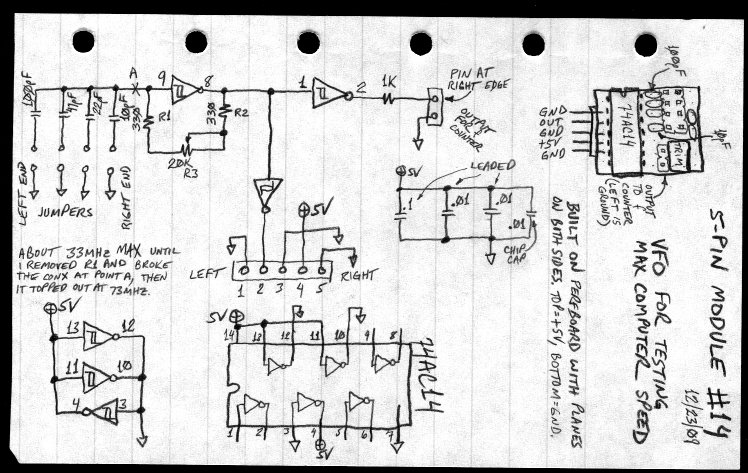 A
9
8
1
2
1K
PIN AT
RIGHT EDGE
OUTPUT
FOR
COUNTER
100pF
47pF
22pF
10pF
330
R1
330
R2
20K
R3
LEFT END
JUMPERS
RIGHT END
ABOUT 33MHZ MAX UNTIL
I REMOVED R1 AND BROKE
THE CONX AT POINT A, THEN
IT TOPPED OUT AT 73MHZ.
5V
LEFT
RIGHT
1 2 3 4 5
5V
LEADED
.1
.01
.01
.01
CHIP
CAP
5V
13
12
11
10
4
3
5V
14 13 12 11 10 9 8
74AC14
1 2 3 4 5 6 7
5V
100pF
10pF
74AC14
TRIM
GND
OUT
GND
+5V
GND
OUTPUT
TO
COUNTER
(LEFT IS
GROUND)
5-PIN MODULE #14
12/23/09
VFO FOR TESTING
MAX COMPUTER SPEED
BUILT ON PERFBOARD WITH PLANES
ON BOTH SIDES. TOP=+5V, BOTTOM=GND.